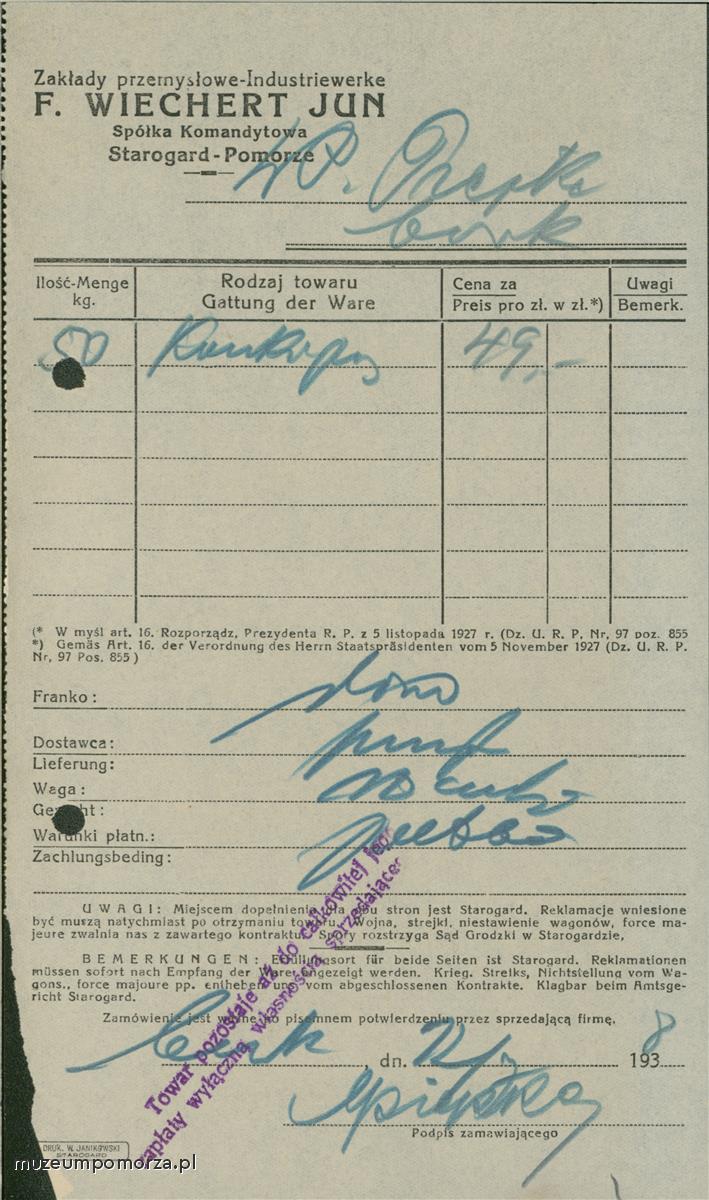 Zakłady przemysłowe-Industriewerke
F. WIECHERT JUN
Spółka Komandytowa
Starogard-Pomorze
W P.
Czersk
Ilość-Menge kg.
Rodzaj towaru
Gattung der Ware
Cena za
Preis pro zł. w zł.*)
Uwagi
Bemerk.
50 49,-
(* W myśl art. 16. Rozporządz, Prezydenta R. P. z 5 listopada 1927 r. (Dz. U. R. P. Nr, 97 poz. 855
*) Gemäs Art. 16. der Verordnung des Herrn Staatspräsidenten vom 5 November 1927 (Dz. U. R. P.
Nr, 97 Pos. 855)
Franko:
Dostawca:
Lieferung:
Waga:
Gewicht:
Warunki płatn.:
Zachlungsbeding:
UWAGI: Miejscem dopełnienia dla obu stron jest Starogard. Reklamacje wniesione
być muszą natychmiast po otrzymaniu towaru. Wojna, strejki, niestawienie wagonów, force ma-
jeure zwalnia nas z zawartego kontraktu. Spory rozstrzyga Sąd Grodzki w Starogardzie,
BEMERKUNGEN: Erfüllungsort für beide Seiten ist Starogard. Reklamationen
müssen sofort nach Empfang der Ware angezeigt werden. Krieg. Streiks, Nichtstellung vom Wa-
gons., force majoure pp. entheben uns vom abgeschlossenen Kontrakte. Klagbar beim Amtsge-
richt Starogard.
Towar pozostaje aż do całkowitej jego
zapłaty wyłączną własnością sprzedającego
Zamówienie jest ważne po pisemnem potwierdzeniu przez sprzedającą firmę,
, dn. 193 8
Podpis zamawiającego
DRUK. W. JANIKOWSKI
STAROGARD
muzeumpomorza.pl